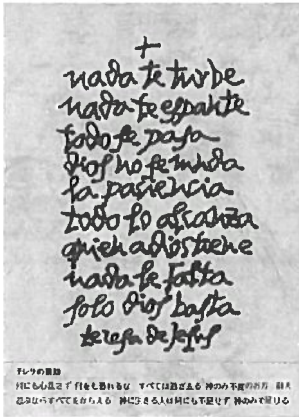 nada te turbe
nada te espante
todo se pasa
dios no se muda
la paciencia
todo lo alcanza
quien a dios tiene
nada le falta
solo dios basta
teresa de jesus
テレサの
何にも心乱さず 何をも恐れるな すべては過ぎ去る 神のみ不変
すべてを 神に生きる人は何にも不足せず 神のみで足りる